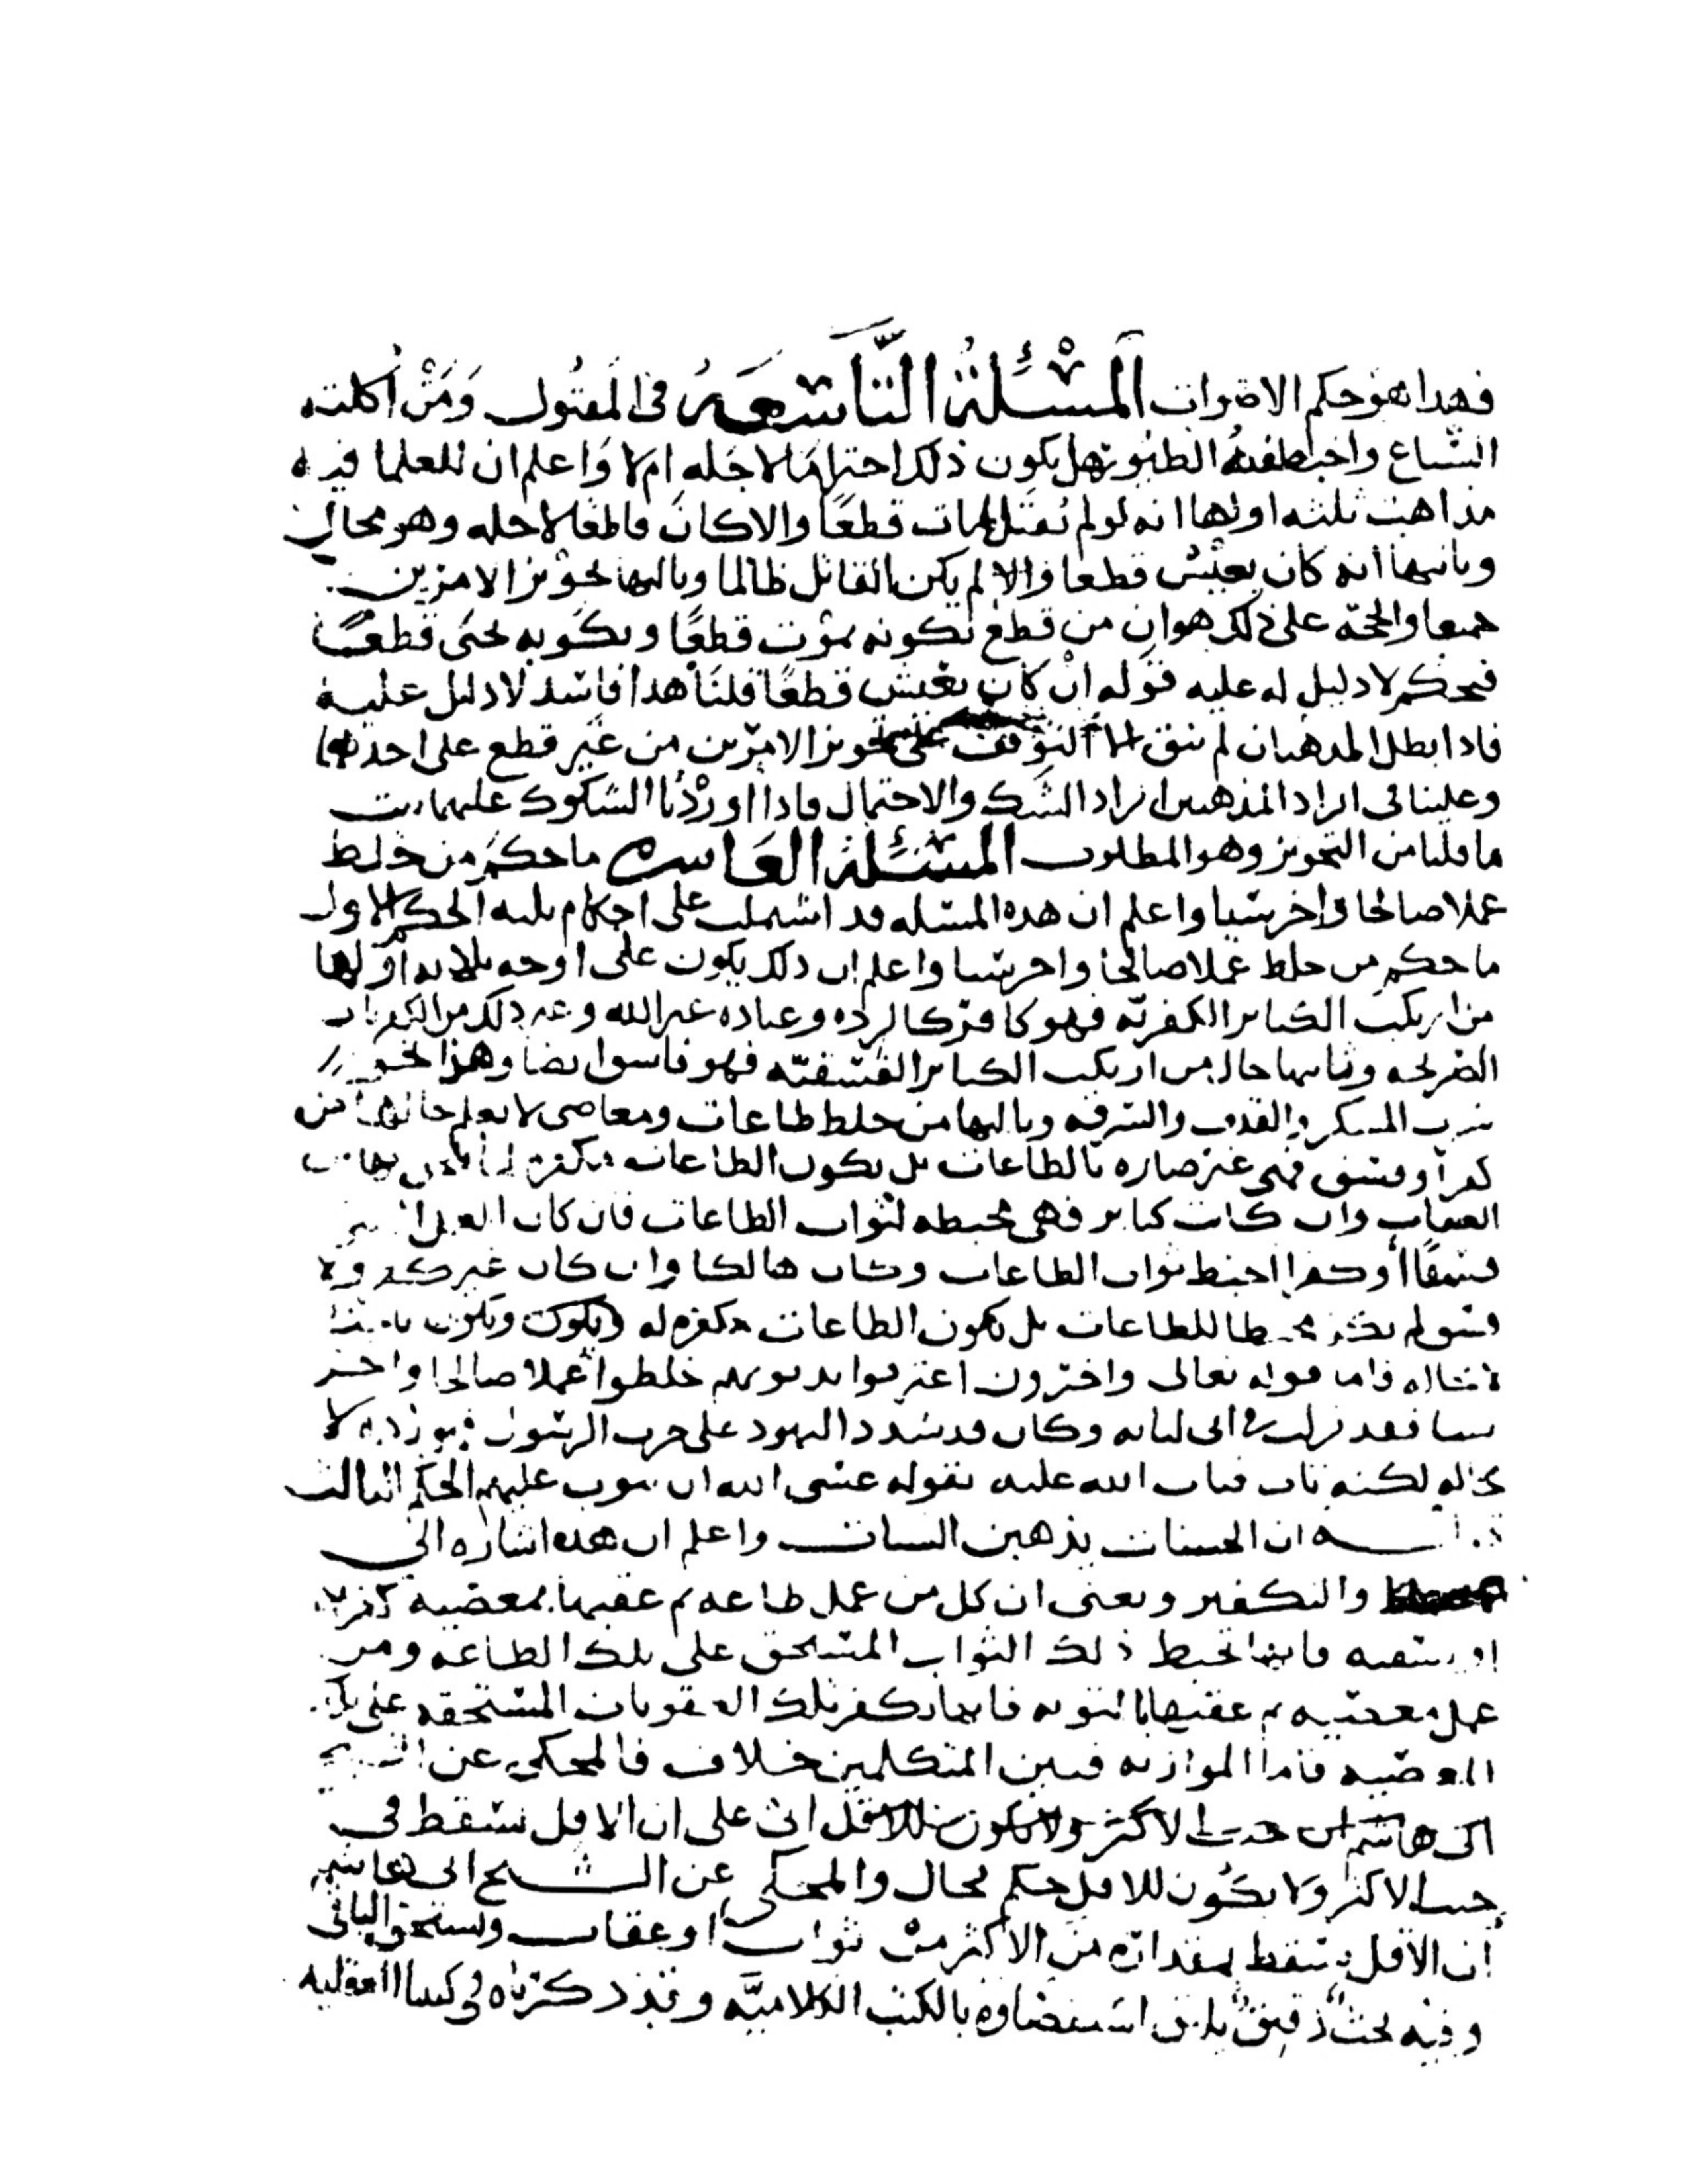 فهذا هو حكم الاصوات المَسْئَلةُ التَّاسَعَهُ في المقتُول وَمَنْ أكلته
السّباع واختطفته الطيُور هل يكون ذلك احترامًا لاجَله ام لا وَاعلم ان للعلما فيه
مذاهبَ ثلثه اولها انه لو لم يُقتل لمات قطعًا والا كانَ قاطعا لاجله وهو محال
وثانيها انه كان يعيْش قطعا والا لم يكن القاتل ظالما وثالثها تجوْيز الامرين
جميعا والحجّة على ذلك هو ان من قطع بكونه يموْت قطعًا وبكونه يحيَى قطعًا
فتحكم لا دليل له عليه قوله انْ كان يعْيش قطعًا قلنَا هذا فاسد لا دليل عليه
فاذا بطل المذهبان لم يبق الا التوَقف على تجويز الامرّين من غير قطع على احدهما
وعلينا في ايراد المذهبين ايراد الشك والاحتمال فاذا اورَدْنا الشكوك عليهما ثبت
ما قلنا من التجويز وهو المطلوب المسْئَلةُ العَاشره ما حكمُ من خلط
عملا صالحا واخر سيّيا واعلم ان هذه المسئله قد اشتملت على احكام ثلثه الحكم الاول
ما حكم من خلط عملا صالحا واخر سيّيا واعلم ان ذلك يكون على اوجه ثلاثه اولها
من ارتكب الكبائر الكفريّه فهو كافر كالردّه وعباده غير الله وغير ذلك من الكفريات
الصريحه وثانيها حال من ارتكب الكبائر الفسْقيّه فهو فاسق ايضا وهذا نحو
شرب المسكر والقذف والسرقه وثالثها من خلط طاعات ومعاصى لا يعلم حالها من
كفر او فسْق فهى غير ضاره بالطاعات بل يكون الطاعات مكفره لما
العقاب وان كانت كبائر فهى محبطه لثواب الطاعات فان كان العمل
فسْقًا أوكفرا احبط ثواب الطاعات وكان هالكا وان كان غير كفر ولا
فسْق لم يكن محبطا للطاعات بل يكون الطاعات مكفره له ويكون
فاما قوله تعالى واخرون اعترفوا بذنوبهم خلطوا عملا صالحا واخر
سيّيا فقد نزلت في ابى لبابه وكان قد شدد اليهود على حرب الرسول
لكنه تاب فتاب الله عليه بقوله عسَى الله ان يتوب عليهم الحكم الثالث
ان الحسنات يذهبن السيات واعلم ان هذه اشاره الى
والتكفير ومعنى ان كل من عمل طاعه ثم عقبها بمعصيه كفريه
او فسقيه فانها تحبط ذلك الثواب المستحق على تلك الطاعه ومن
عمل معصيه ثم عقبها بالتوبه فانها تكفر تلك العقوبات المستحقه على تلك
المعصيه فاما الموازنه فبين المتكلمين خلاف فالمحكى عن الشيخ
ابى على ان الاقل يسقط في
جنب الاكثر ولا يكون للاقل حكم بحال والمحكى عن الشيخ ابى هاشم
ان الاقل يسقط بمقداره من الاكثر من ثواب او عقاب ويستحق الباقى
وفيه بحث دقيق استقصاوه بالكتب الكلاميّه وقد ذكرناه في كتبنا العقليه